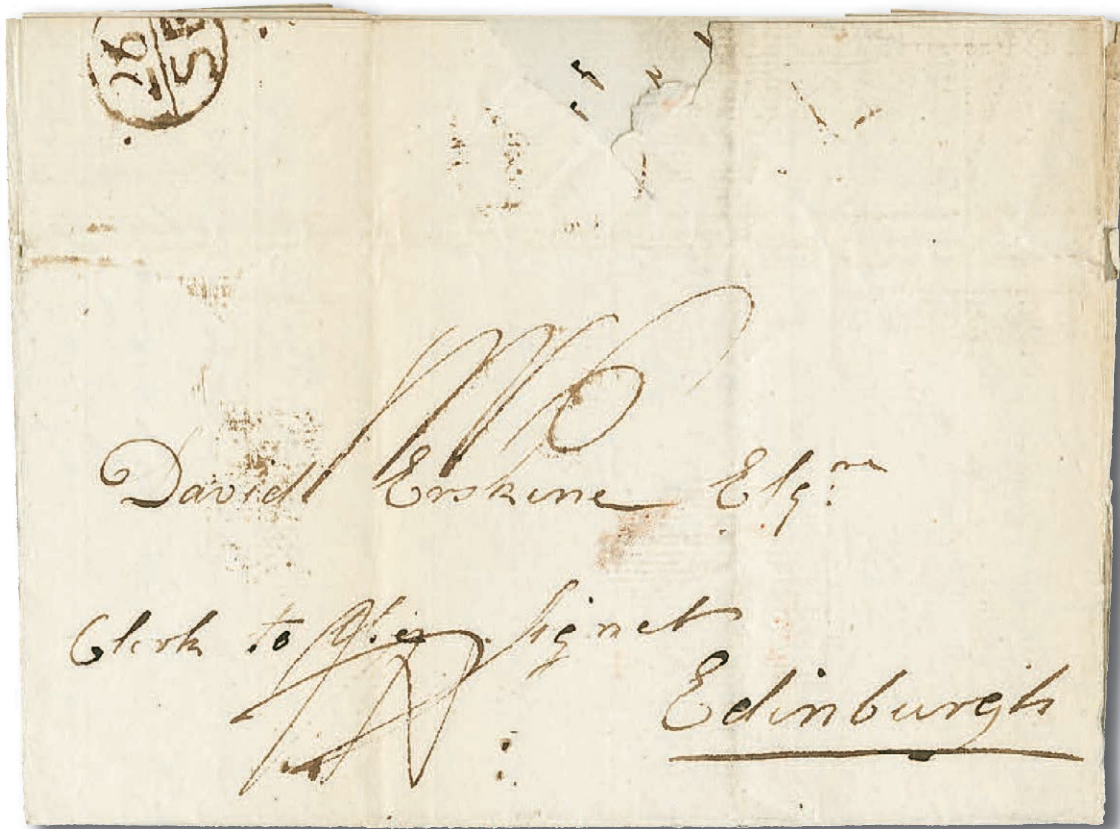 26
SE
David Erskine Esq.re
Clerk to the Signet
Edinburgh